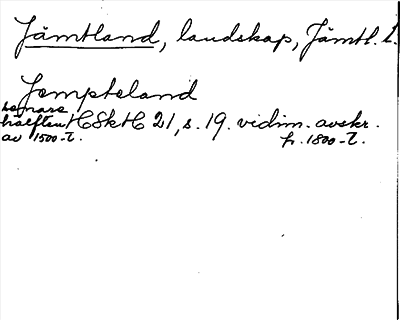 Jämtland, landskap, Jämtl. L.
Jempteland
senare
hälften HSkH 21, s. 19. vidim. avskr.
av 1500-t. fr. 1800-t.